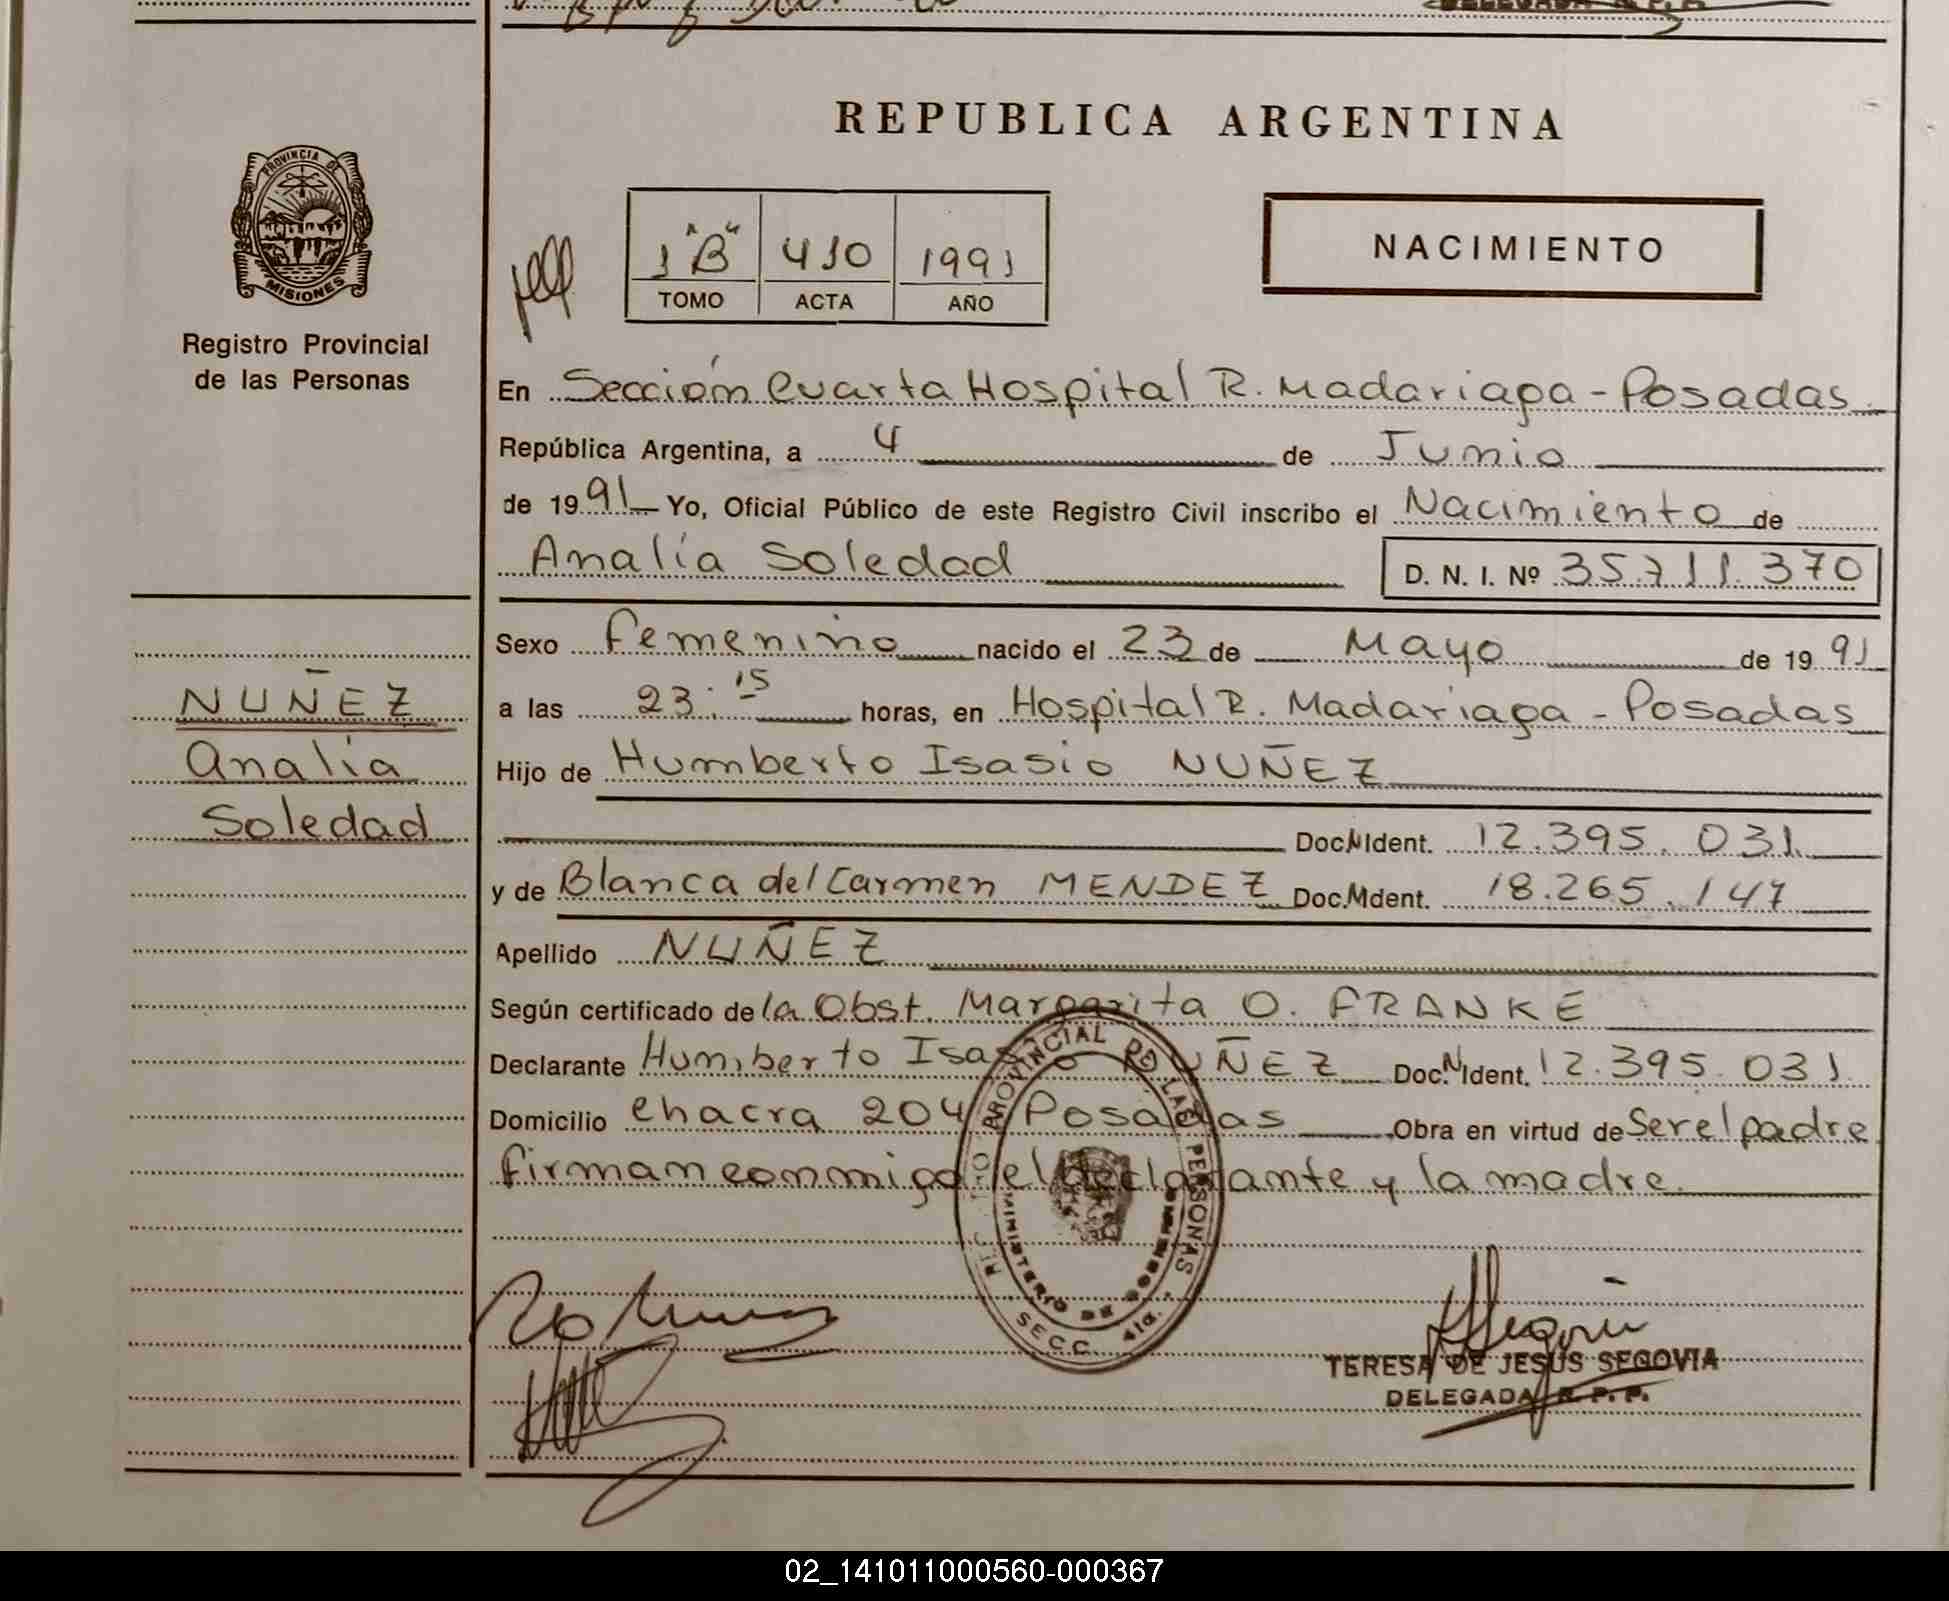 REPUBLICA ARGENTINA
PROVINCIA DE
MISIONES
Registro Provincial
de las Personas
1 "B" 410 1991
TOMO ACTA AÑO
NACIMIENTO
En Sección Cuarta Hospital R. Madariaga - Posadas
República Argentina, a 4 de Junio
de 1991 Yo, Oficial Público de este Registro Civil inscribo el Nacimiento de
Analía Soledad D. N. I. Nº 35.711.370
NUÑEZ
Analía
Soledad
Sexo Femenino nacido el 23 de Mayo de 1991
a las 23:15 horas, en Hospital R. Madariaga - Posadas
Hijo de Humberto Isasio NUÑEZ
Doc. N Ident. 12.395.031
y de Blanca del Carmen MENDEZ Doc. N Ident. 18.265.147
Apellido NUÑEZ
Según certificado de la Obst. Margarita O. FRANKE
Declarante Humberto Isasio NUÑEZ Doc. N Ident. 12.395.031
Domicilio chacra 204 Posadas Obra en virtud de Ser el padre
firman conmigo el declarante y la madre.
PROVINCIAL DE LAS PERSONAS
MINISTERIO DE GOBIERNO
SECC. 4ta.
TERESA DE JESUS SEGOVIA
DELEGADA R. P. P.
02_141011000560-000367